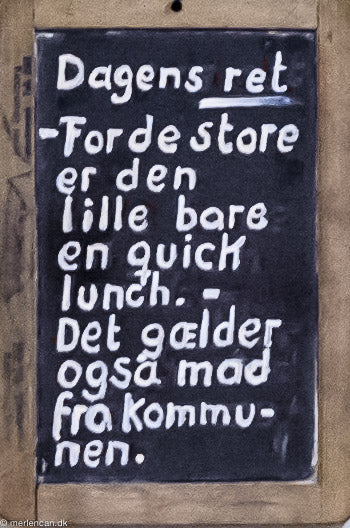 Dagens ret
-For de store
er den
lille bare
en quick
lunch. -
Det gælder
også mad
fra kommu-
nen.
© merlencan.dk